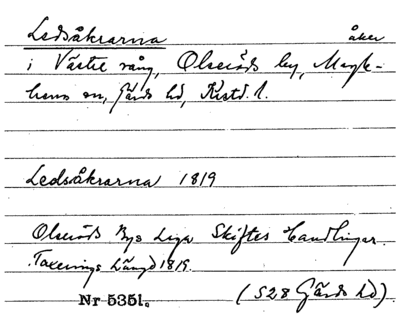 Ledsåkrarna åker
i Västre vång, Olseröds by, Magle-
hems sn, Gärds hd, Kristd. l.
Ledsåkrarna 1819
Olseröds Bys Laga Skiftes Handlingar.
Taxerings Längd 1819.
Nr 5351. (S28 Gärds hd)